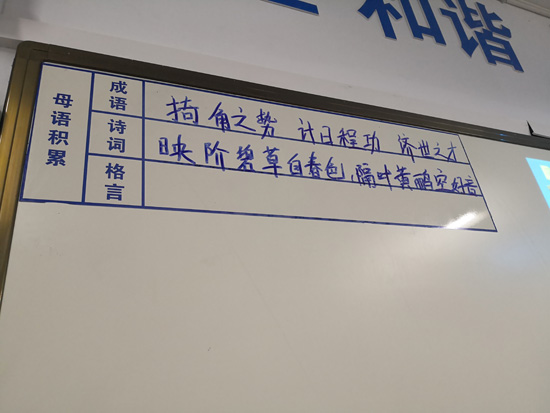 和谐
母语积累
成语
掎角之势 计日程功 济世之才
诗词
映阶碧草自春色，隔叶黄鹂空好音
格言